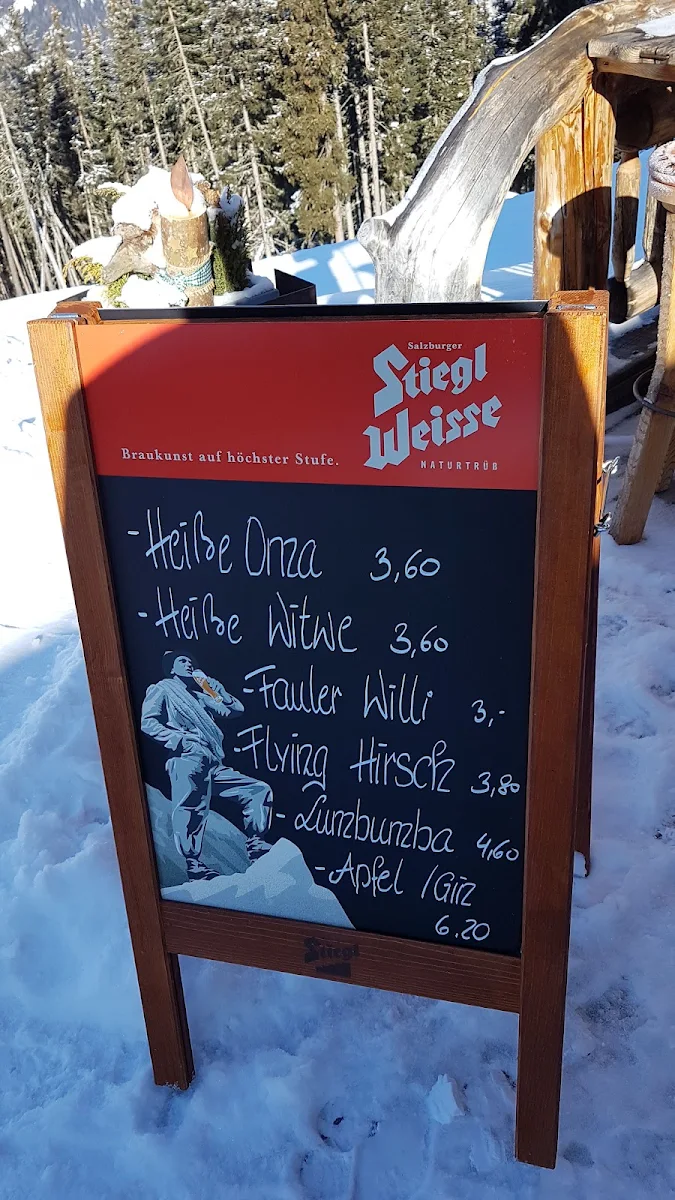 Salzburger
Stiegl
Weisse
NATURTRÜB
Braukunst auf höchster Stufe.
- Heiße Oma 3,60
- Heiße Witwe 3,60
- Fauler Willi 3,-
- Flying Hirsch 3,80
- Lumbumba 4,60
- Apfel / Gin
6.20
Stiegl